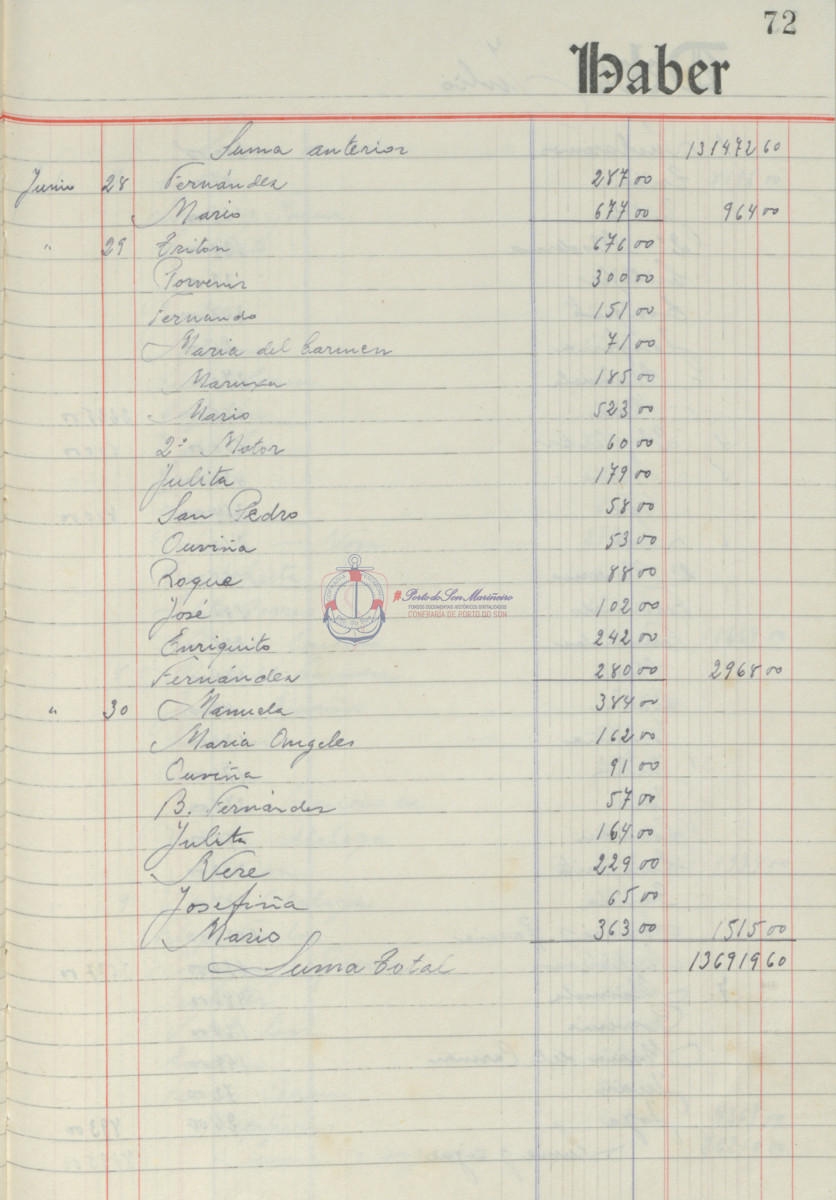 72
Haber
Suma anterior 131472 60
Junio 28 Fernández 287 00
Mario 677 00 964 00
" 29 Triton 676 00
Porvenir 300 00
Fernando 151 00
Maria del Carmen 71 00
Maruxa 185 00
Mario 523 00
2º Motor 60 00
Julita 179 00
San Pedro 58 00
Ouviña 53 00
Roque 88 00
José 102 00
Enriquito 242 00
Fernández 280 00 2968 00
" 30 Manuela 384 00
Maria Angeles 162 00
Ouviña 91 00
B. Fernández 57 00
Julita 164 00
Nere 229 00
Josefiña 65 00
Mario 363 00 1515 00
Suma Total 136919 60
#Porto do Son Mariñeiro
FONDOS DOCUMENTAIS HISTÓRICOS DIXITALIZADOS
CONFRARÍA DE PORTO DO SON